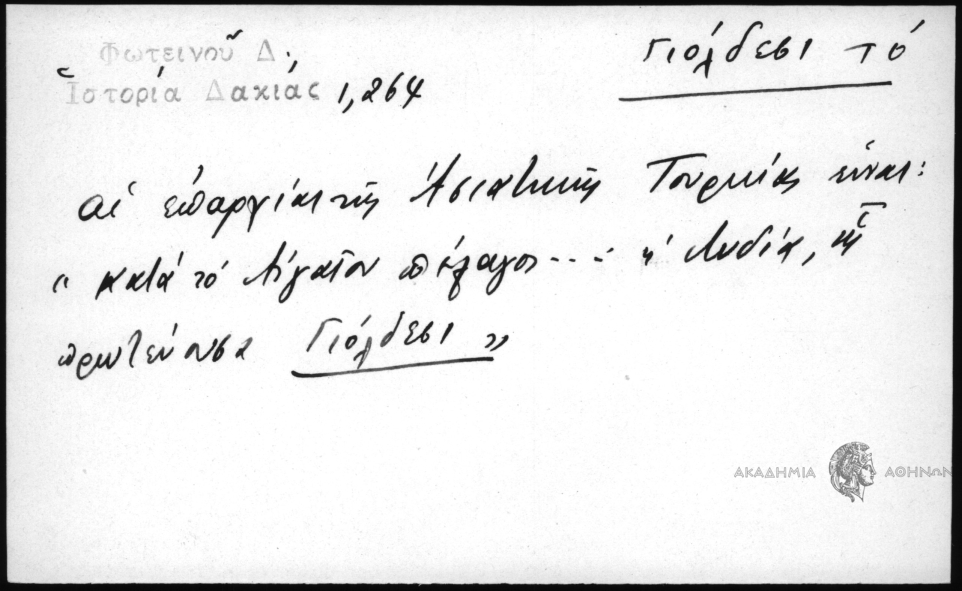 Φωτεινοῦ Δ.
Ἱστορία Δακίας 1,264
Γιόλδεσι τό
αἱ ἐπαρχίαι τῆς Ἀσιατικῆς Τουρκίας εἶναι:
"κατά τό Αἰγαῖον πέλαγος... ἡ Λυδία, μέ
πρωτεύουσα Γιόλδεσι"
ΑΚΑΔΗΜΙΑ ΑΘΗΝΩΝ